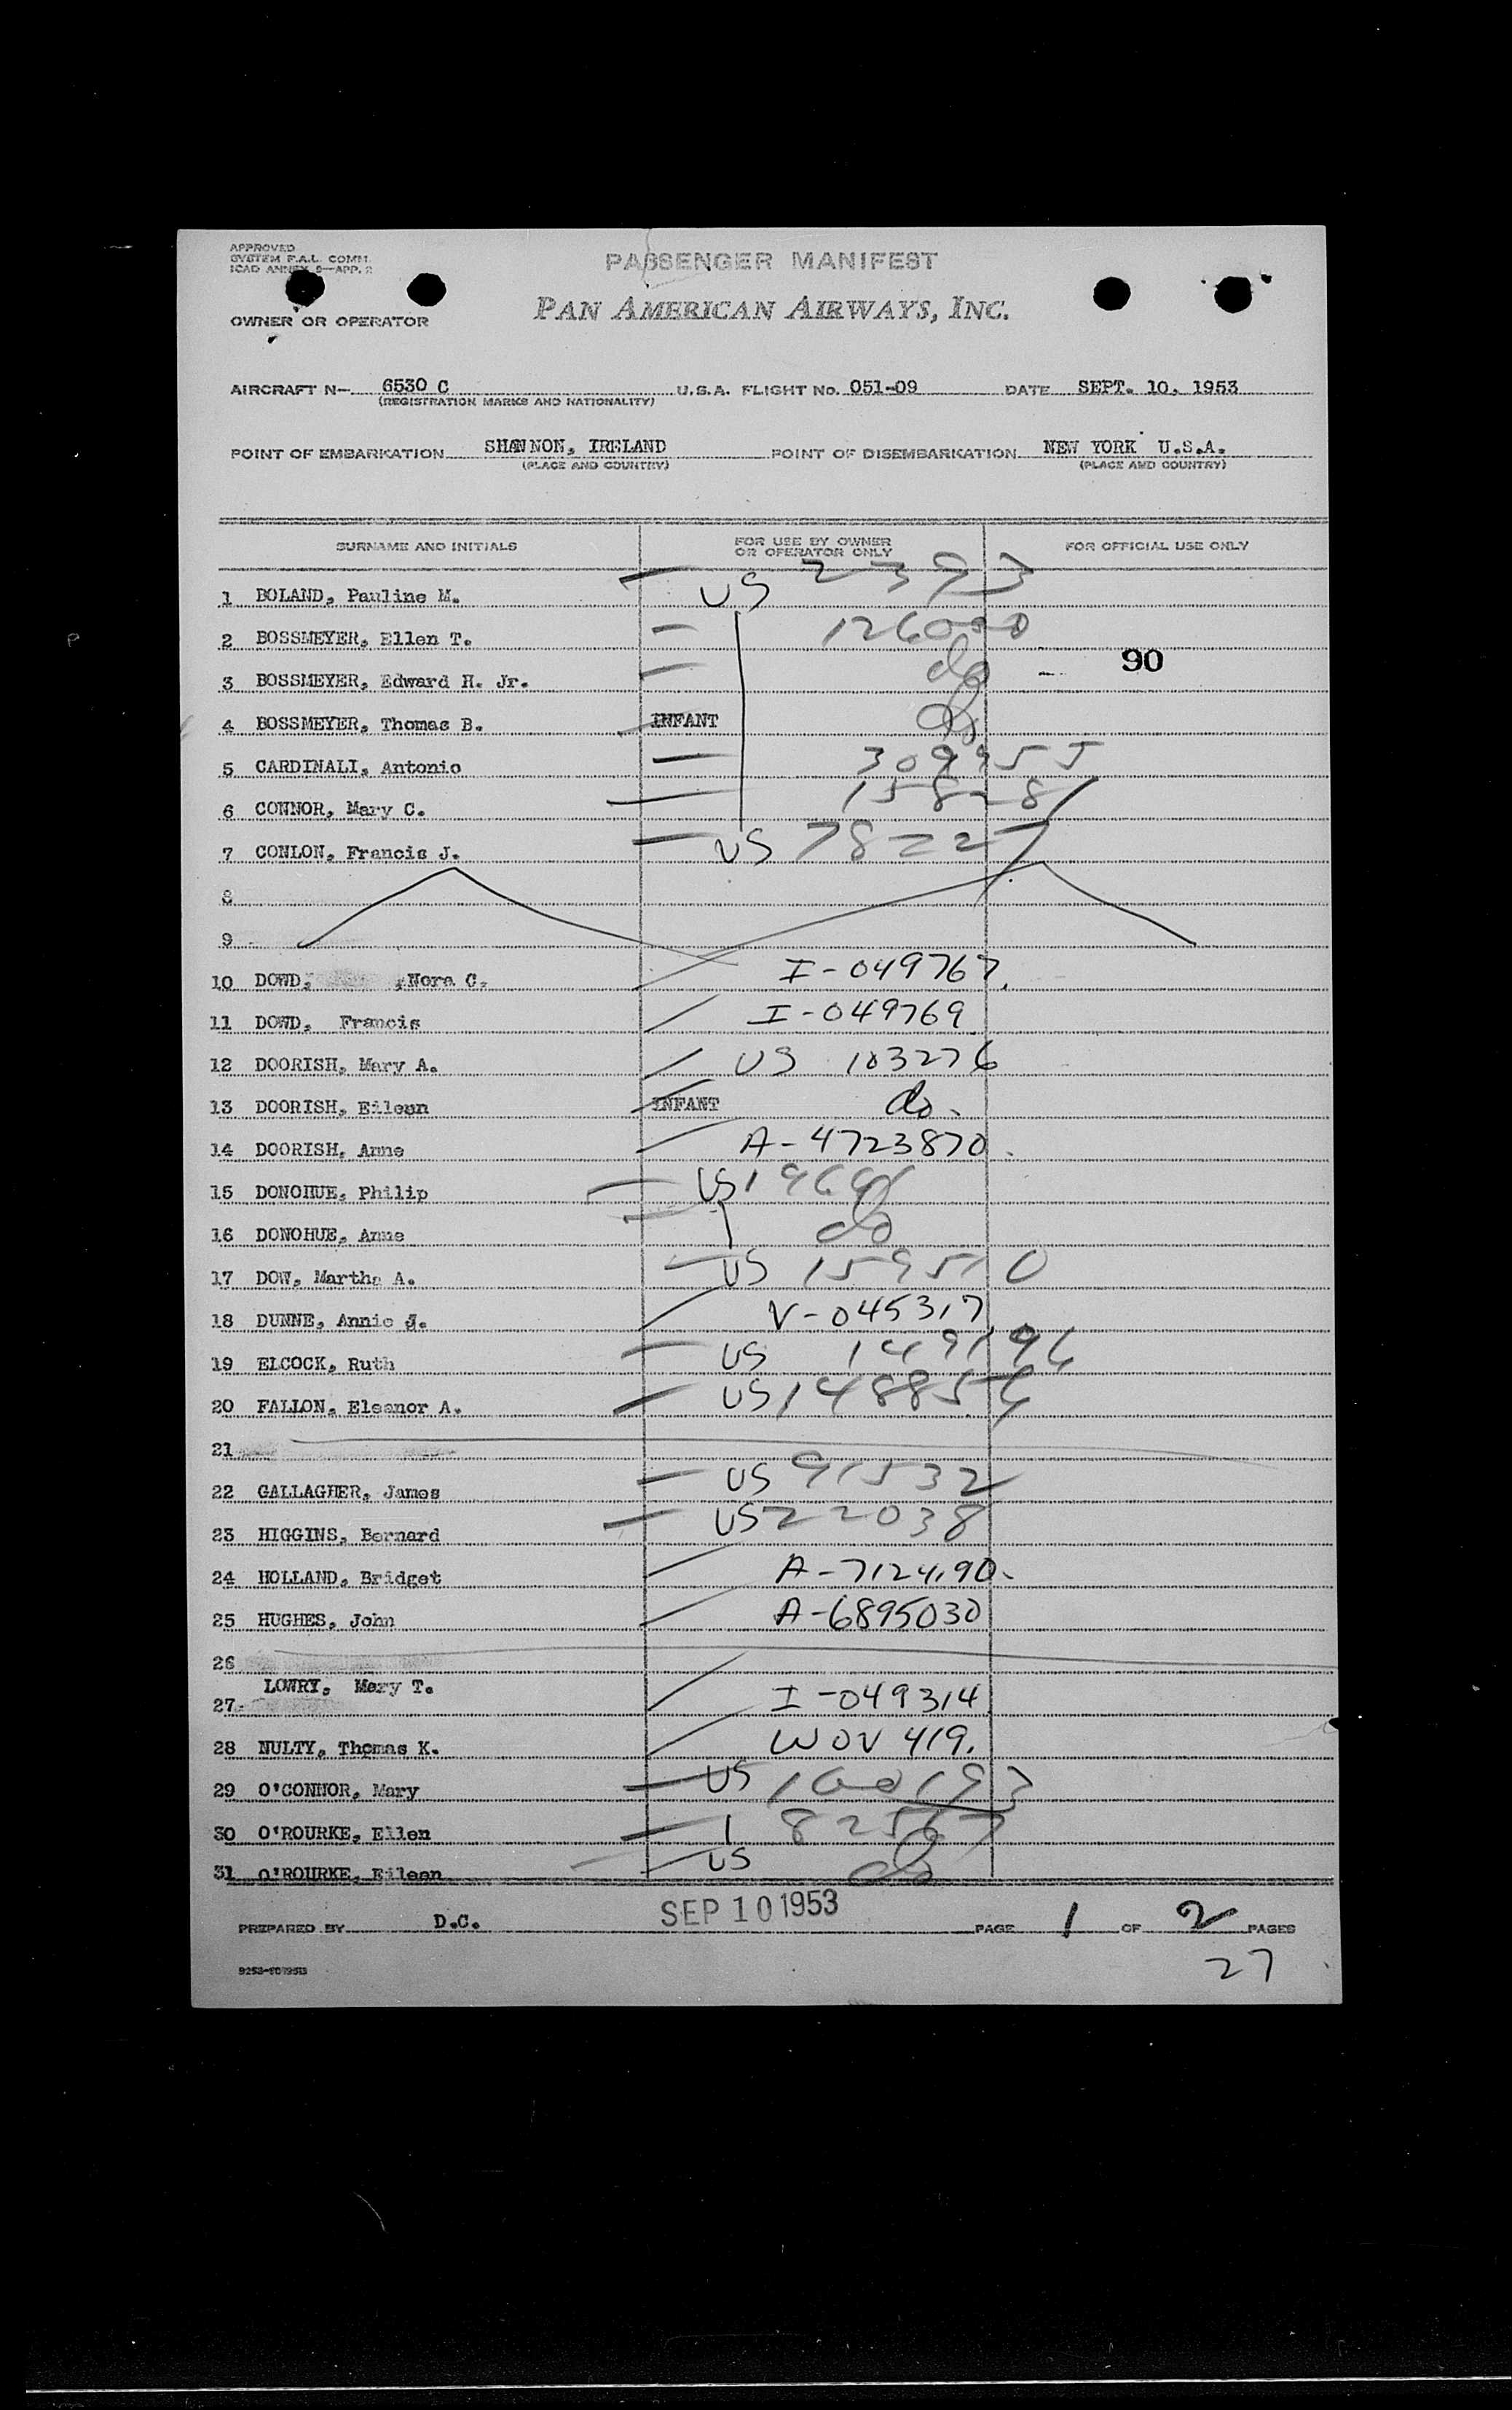 APPROVED
SYSTEM F.A.L. COMM.
ICAO ANNEX 9—APP. 2
PASSENGER MANIFEST
PAN AMERICAN AIRWAYS, INC.
OWNER OR OPERATOR
AIRCRAFT N— 6530 C U.S.A. FLIGHT No. 051-09 DATE SEPT. 10, 1953
(REGISTRATION MARKS AND NATIONALITY)
POINT OF EMBARKATION SHANNON, IRELAND POINT OF DISEMBARKATION NEW YORK U.S.A.
(PLACE AND COUNTRY) (PLACE AND COUNTRY)
SURNAME AND INITIALS FOR USE BY OWNER OR OPERATOR ONLY FOR OFFICIAL USE ONLY
1 BOLAND, Pauline M. US 2393
2 BOSSMEYER, Ellen T. 126000
3 BOSSMEYER, Edward H. Jr. do 90
4 BOSSMEYER, Thomas B. INFANT do
5 CARDINALI, Antonio 309955
6 CONNOR, Mary C. 15828
7 CONLON, Francis J. US 78227
8
9
10 DOWD, ,Nora C. I-049767
11 DOWD, Francis I-049769
12 DOORISH, Mary A. US 103276
13 DOORISH, Eileen INFANT do.
14 DOORISH, Anne A-4723870
15 DONOHUE, Philip US
16 DONOHUE, Anne do
17 DOW, Martha A. US 159510
18 DUNNE, Annie J. V-045317
19 ELCOCK, Ruth US 149196
20 FALLON, Eleanor A. US 148856
21
22 GALLAGHER, James US 91532
23 HIGGINS, Bernard US 22038
24 HOLLAND, Bridget A-7124190
25 HUGHES, John A-6895030
26
LOWRY, Mary T.
27 I-049314
28 NULTY, Thomas K. WOV 419.
29 O'CONNOR, Mary US 160193
30 O'ROURKE, Ellen 82567
31 O'ROURKE, Eileen US do
PREPARED BY D.C. SEP 10 1953 PAGE 1 OF 2 PAGES
27